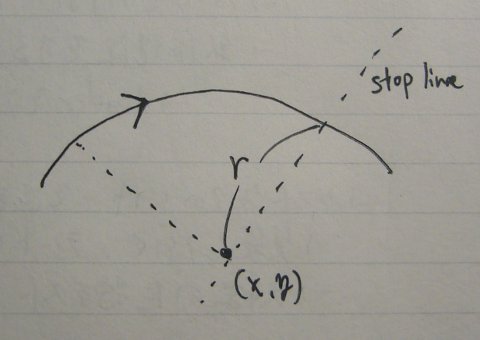 stop line
r
(x,y)